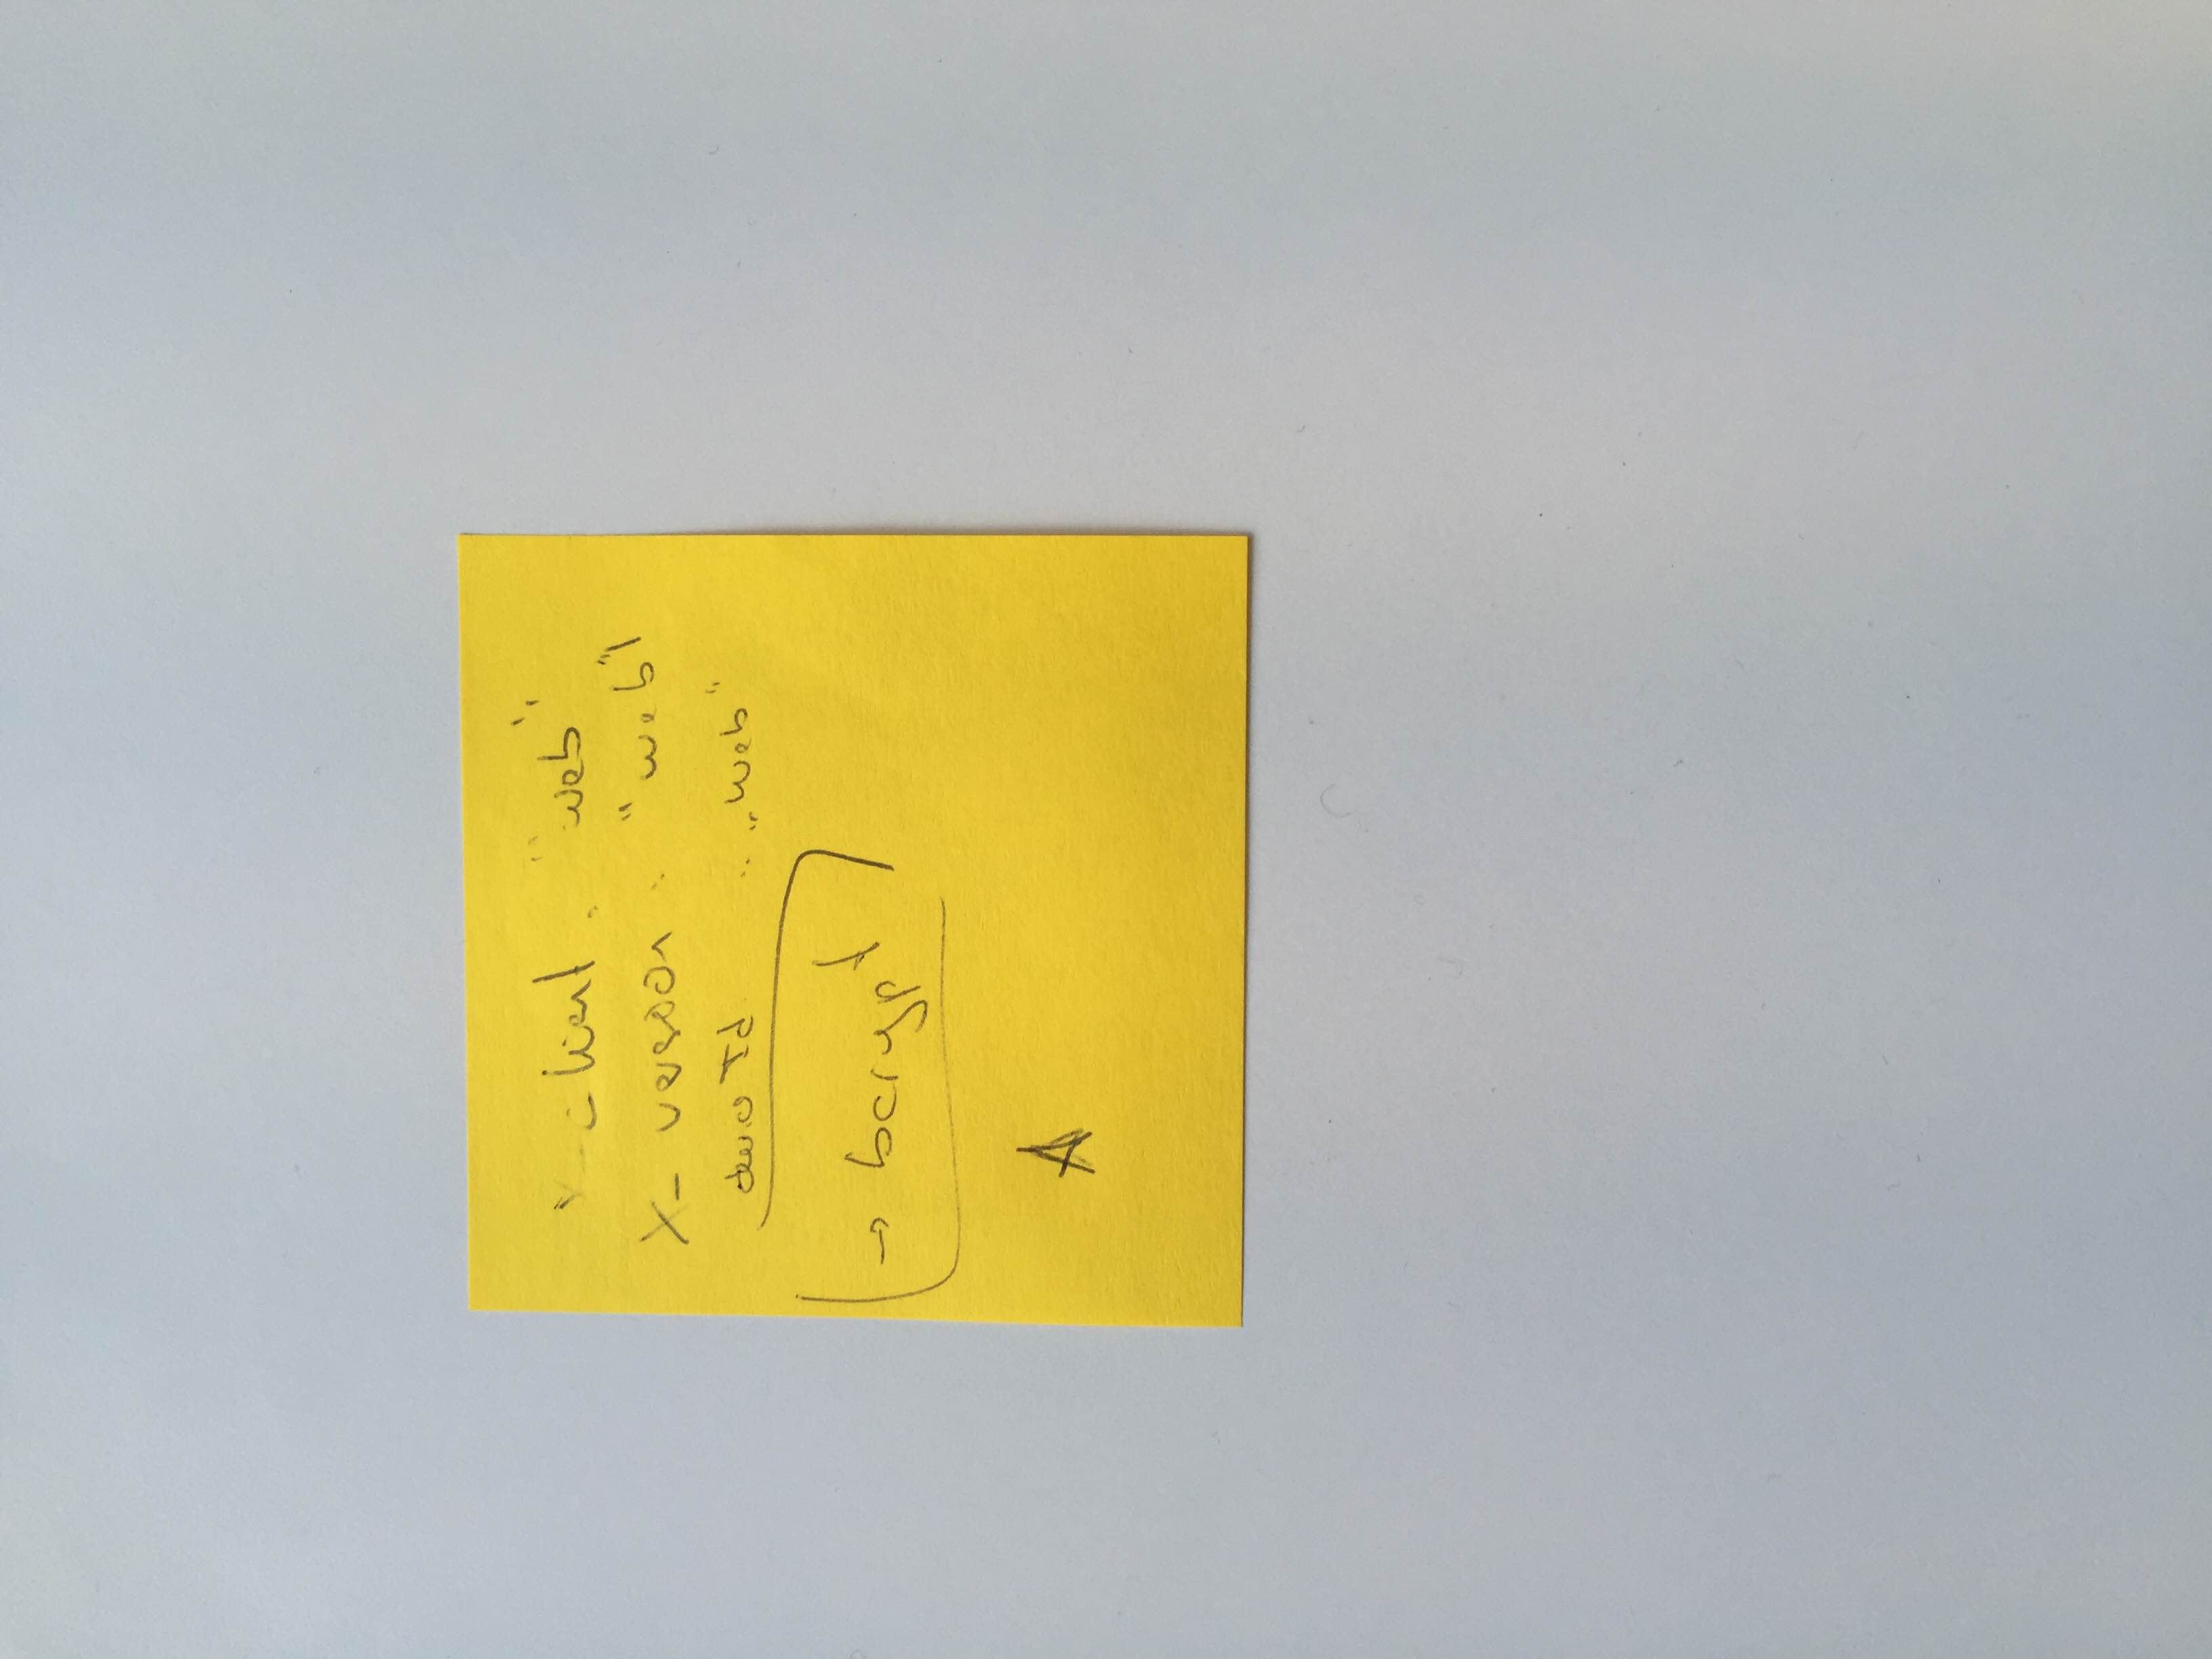 x-client : "web"
X-version : "web"
Id : "web"
→ bcrypt
A